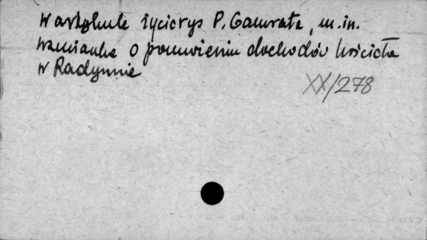 w artykule życiorys P. Gamrata, m.in.
wzmianka o pomnożeniu dochodów kościoła
w Radymnie
XX/278